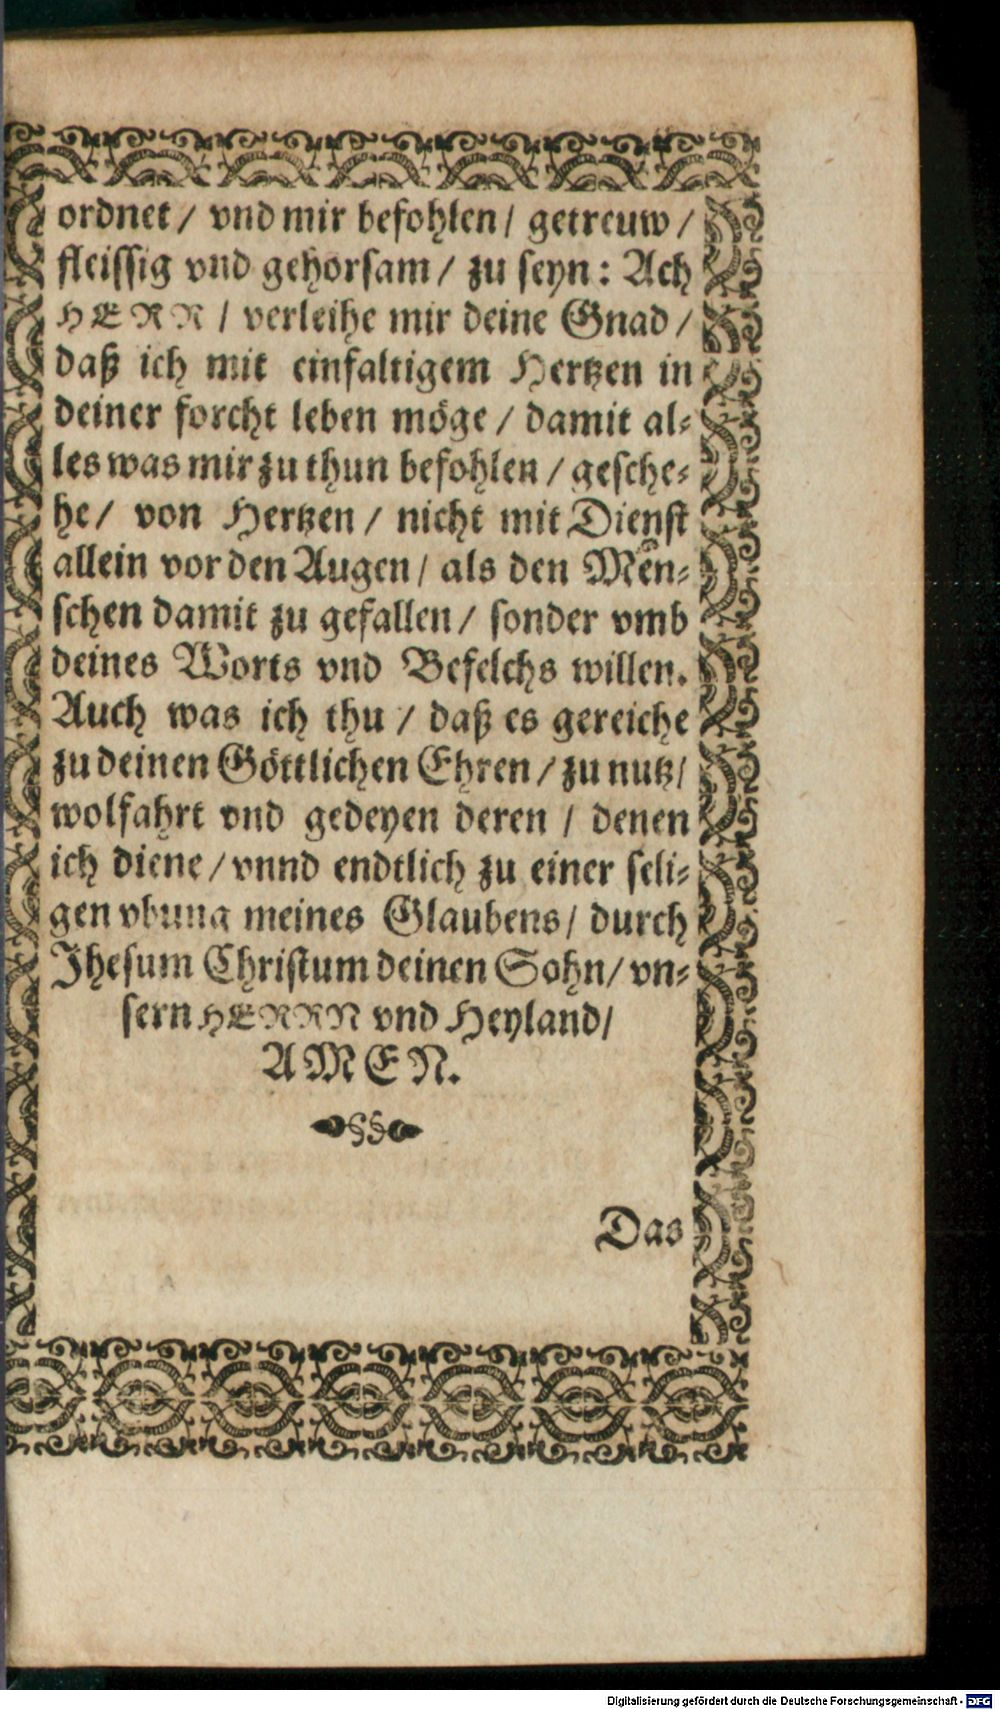 ordnet / vnd mir befohlen / getreuw /
fleissig vnd gehorsam / zu seyn: Ach
HERR / verleihe mir deine Gnad /
daß ich mit einfaltigem Hertzen in
deiner forcht leben möge / damit al-
les was mir zu thun befohlen / gesche-
he / von Hertzen / nicht mit Dienst
allein vor den Augen / als den Men-
schen damit zu gefallen / sonder vmb
deines Worts vnd Befelchs willen.
Auch was ich thu / daß es gereiche
zu deinen Göttlichen Ehren / zu nutz /
wolfahrt vnd gedeyen deren / denen
ich diene / vnnd endtlich zu einer seli-
gen vbung meines Glaubens / durch
Jhesum Christum deinen Sohn / vn-
sern HERRN vnd Heyland /
AMEN.
Das
Digitalisierung gefördert durch die Deutsche Forschungsgemeinschaft - DFG